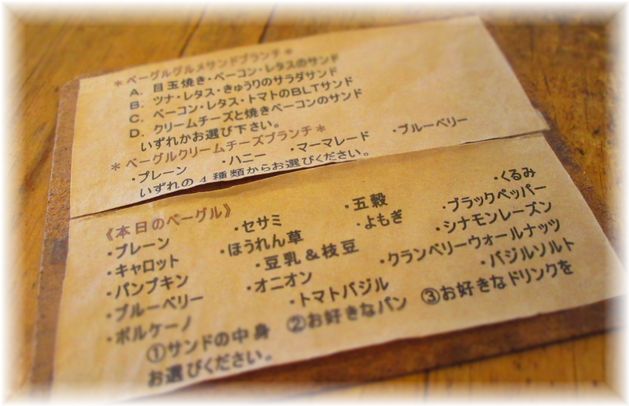 ＊ベーグルグルメサンドブランチ＊
A. 目玉焼き・ベーコン・レタスのサンド
B. ツナ・レタス・きゅうりのサラダサンド
C. ベーコン・レタス・トマトのBLTサンド
D. クリームチーズと焼きベーコンのサンド
いずれかお選び下さい。
＊ベーグルクリームチーズブランチ＊
・プレーン ・ハニー ・マーマレード ・ブルーベリー
いずれの4種類からお選びください。
《本日のベーグル》
・プレーン ・セサミ ・五穀 ・くるみ
・キャロット ・ほうれん草 ・よもぎ ・ブラックペッパー
・パンプキン ・豆乳＆枝豆 ・シナモンレーズン
・ブルーベリー ・オニオン ・クランベリーウォールナッツ
・ボルケーノ ・トマトバジル ・バジルソルト
①サンドの中身 ②お好きなパン ③お好きなドリンクを
お選びください。